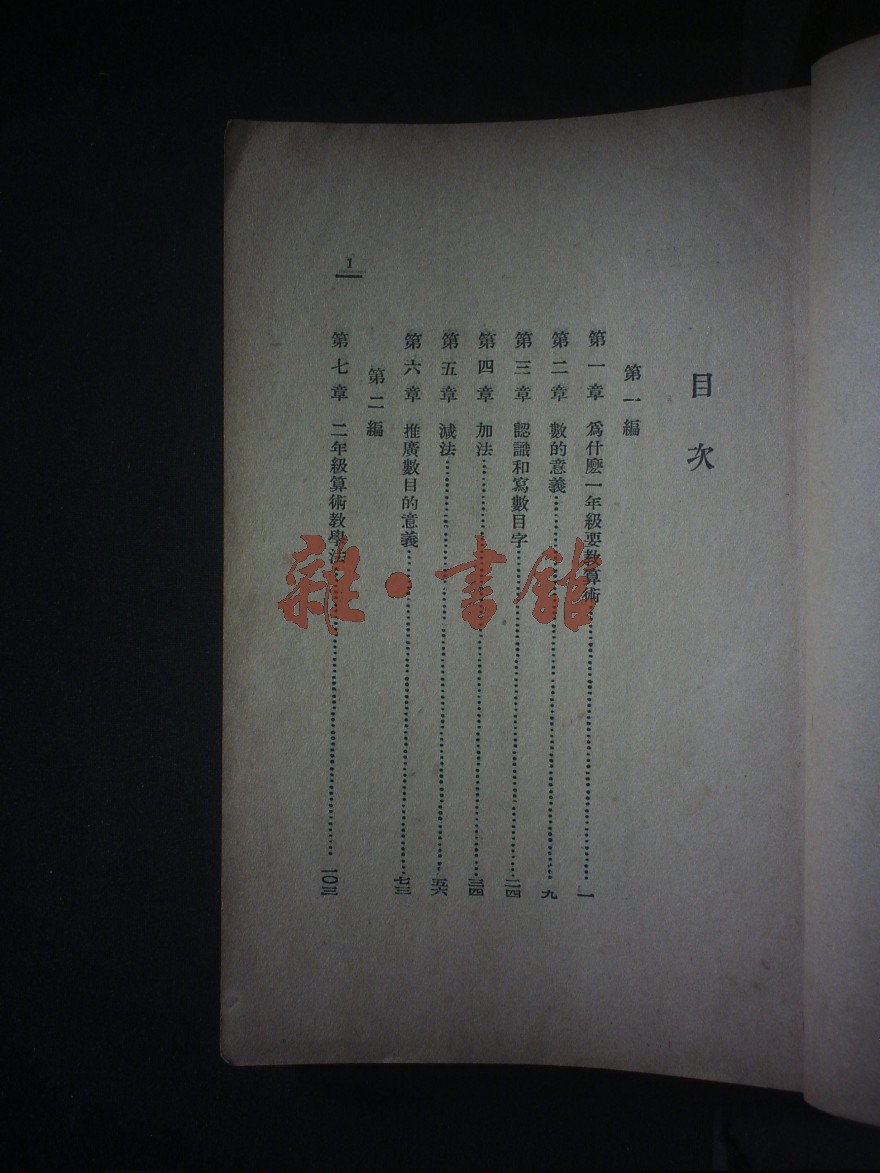 目次
第一編
第一章 爲什麼一年級要教算術……一
第二章 數的意義……九
第三章 認識和寫數目字……二四
第四章 加法……三四
第五章 減法……五六
第六章 推廣數目的意義……七三
第二編
第七章 二年級算術教學法……一〇三
1
雜·書館